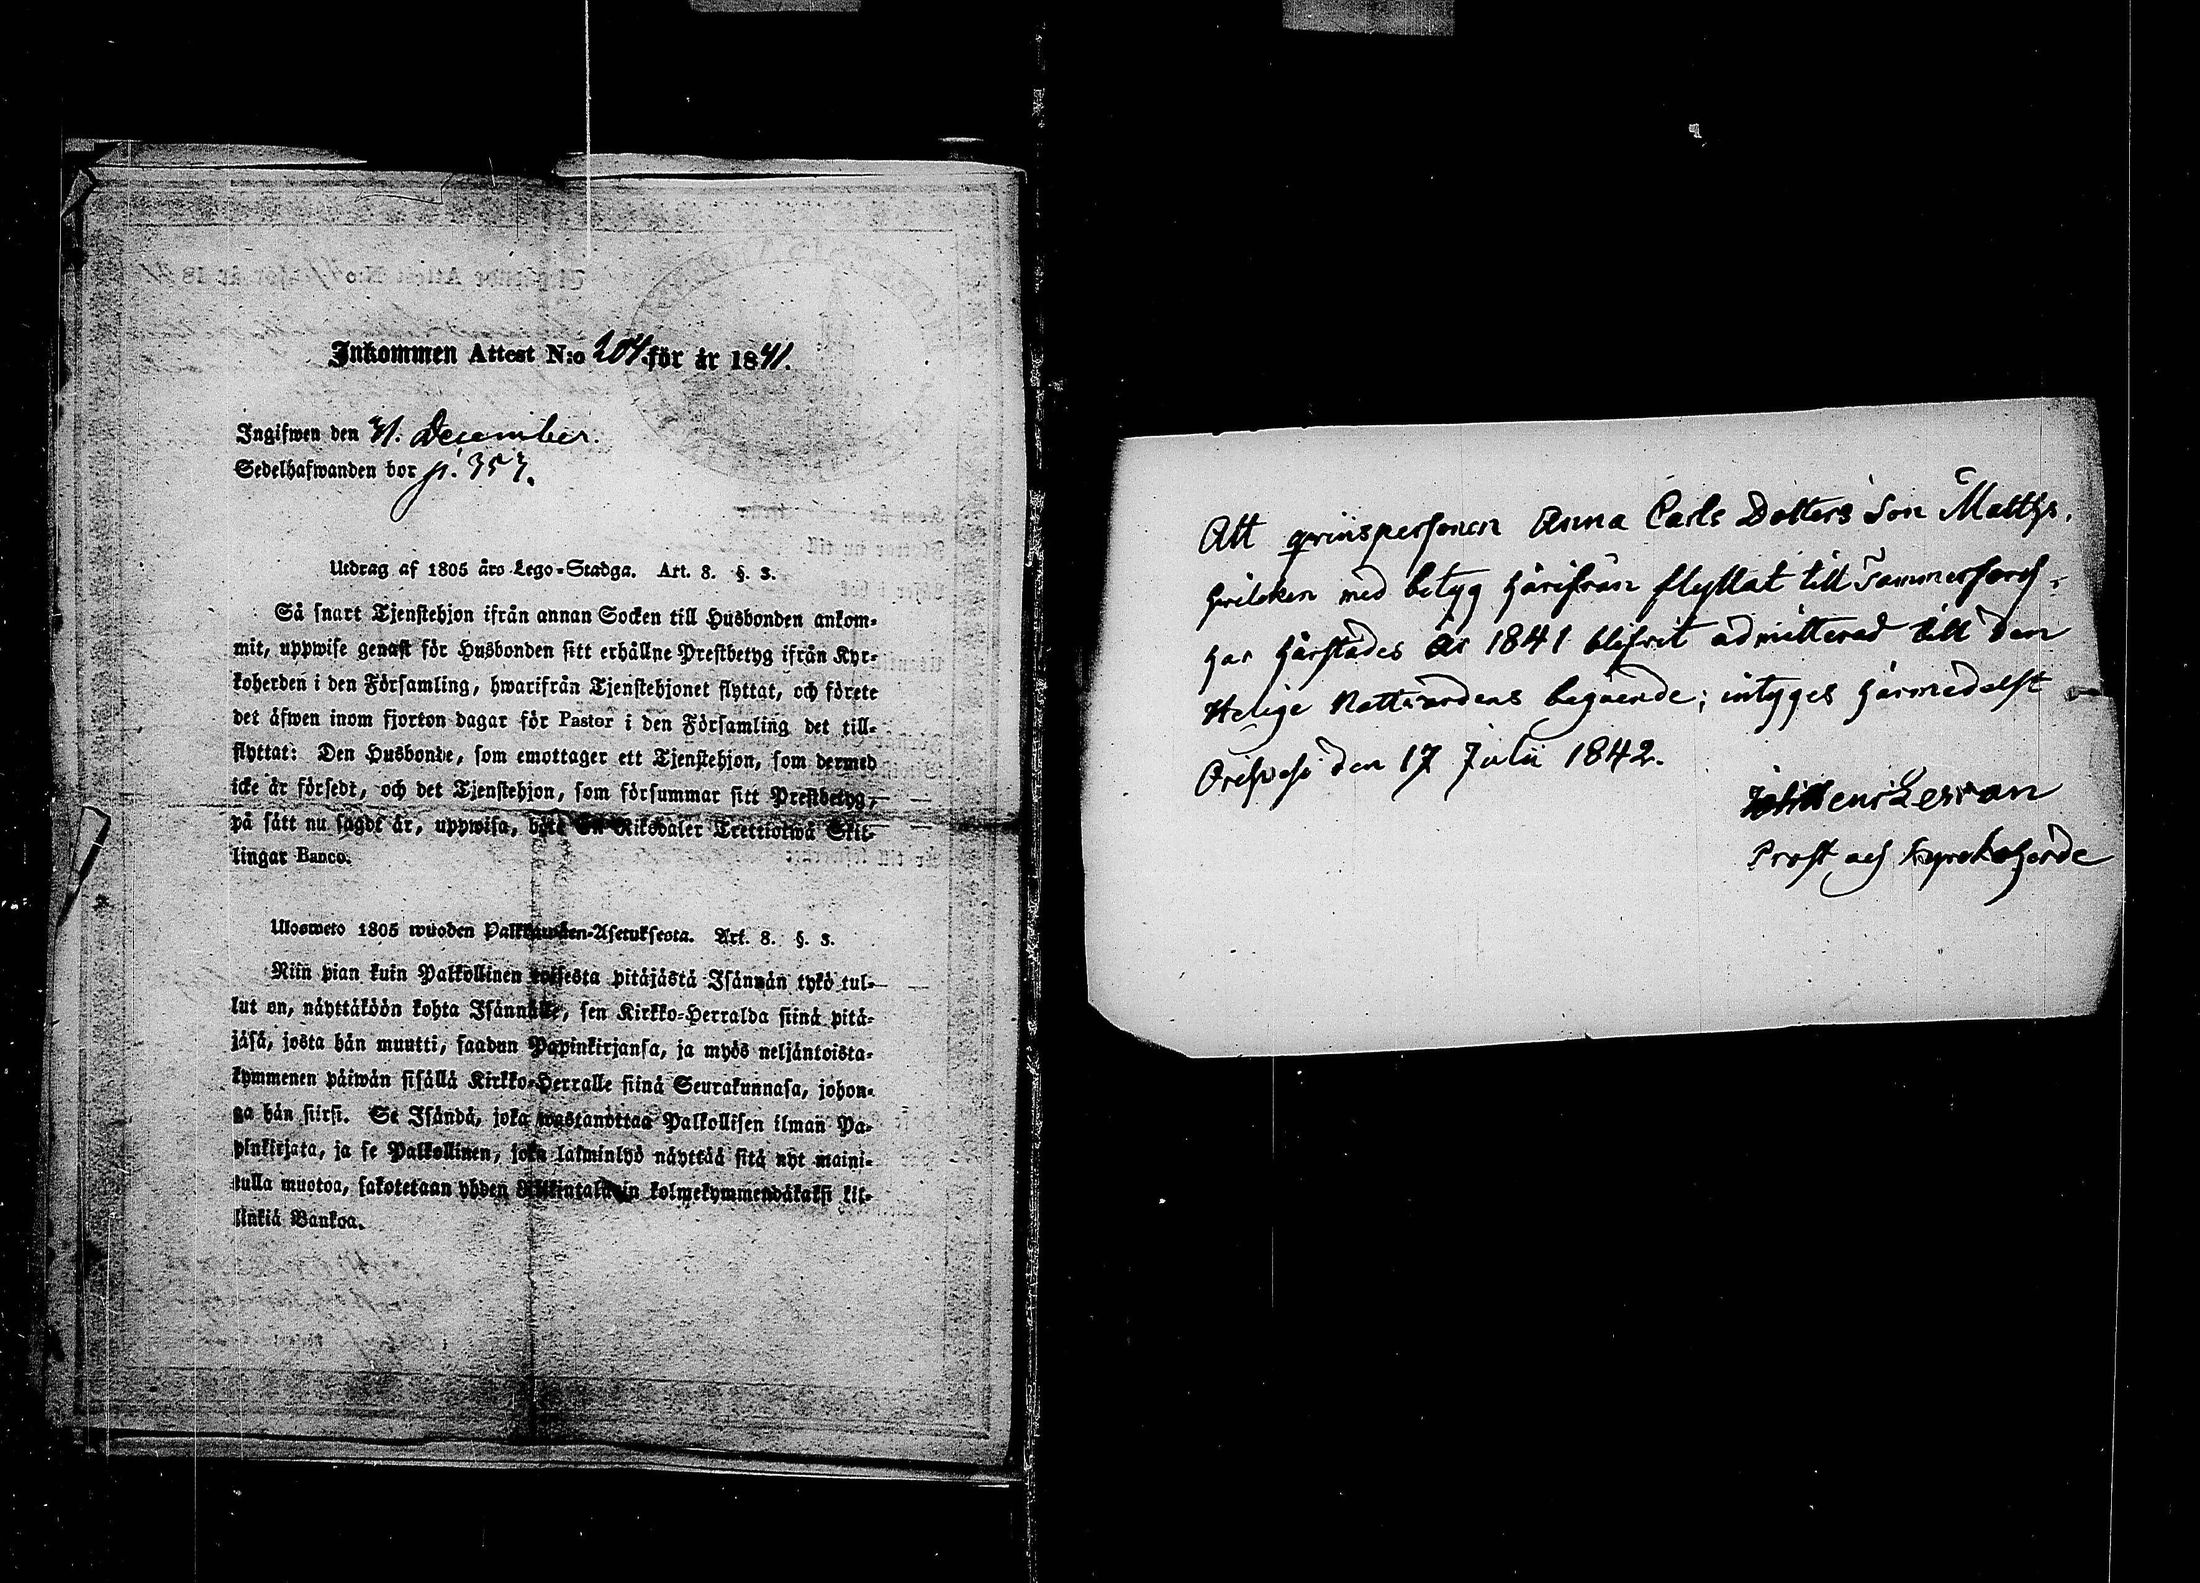 Inkommen Attest N:o 204. för år 1841.
Ingifwen den 31. December.
Sedelhafwanden bor p. 353.
Utdrag af 1805 års Lego-Stadga. Art. 8. §. 3.
Så snart Tjenstehjon ifrån annan Socken till Husbonden ankom-
mit, uppwise genast för Husbonden sitt erhållne Prestbetyg ifrån Kyr-
koherden i den Församling, hwarifrån Tjenstehjonet flyttat, och förete
det äfwen inom fjorton dagar för Pastor i den Församling det till-
flyttat: Den Husbonde, som emottager ett Tjenstehjon, som dermed
icke är försedt, och det Tjenstehjon, som försummar sitt Prestbetyg,
på sätt nu sagdt är, uppwisa, böte En Riksdaler Trettiotwå Skil-
lingar Banco.
Ulosweto 1805 wuoden Palkkawäen-Asetuksesta. Art. 8. §. 3.
Niin pian kuin Palkollinen toisesta pitäjästä Isännän tykö tul-
lut on, näyttäköön kohta Isännälle, sen Kirkko-Herralda siinä pitä-
jäsä, josta hän muutti, saadun Papinkirjansa, ja myös neljäntoista-
kymmenen päiwän sisällä Kirkko-Herralle siinä Seurakunnasa, johon-
ga hän siirsi. Se Isändä, joka wastanottaa Palkollisen ilman Pa-
pinkirjata, ja se Palkollinen, joka laiminlyö näyttää sitä nyt maini-
tulla muotoa, sakotetaan yhden Riikintalarin kolmekymmendäkaksi kil-
linkiä Bankoa.
Att qvinspersonen Anna Carls Dotters Son Matths.
hvilcken med betyg härifrån flyttat till Tammerfors,
har härstädes År 1841 blifvit admitterad till den
Helige Nattvardens begående; intyges härmedelst
Orihvesi den 17 Julii 1842.
Prost och Kyrckoherde